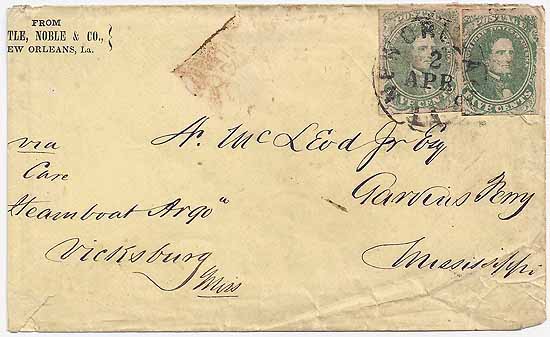 FROM
TLE, NOBLE & CO.,
EW ORLEANS, La.
POSTAGE
FIVE CENTS
POSTAGE
FIVE CENTS
NEW ORLEANS
2
APR
LA
N. McLeod Jr Esq
Garvins Ferry
Mississippi
via
Care
Steamboat Argo"
Vicksburg
Miss